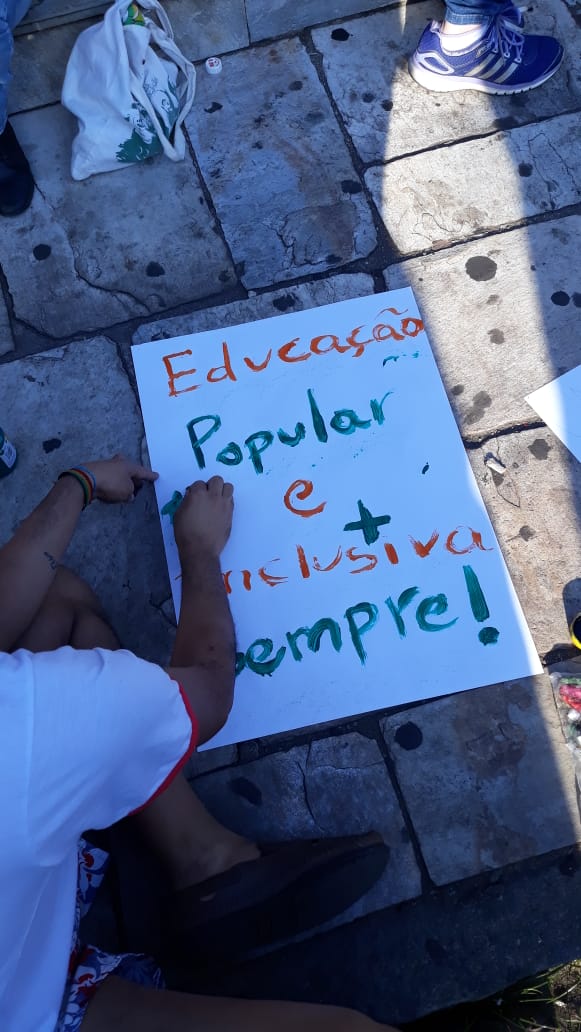 Educação
Popular
e
+
inclusiva
sempre!